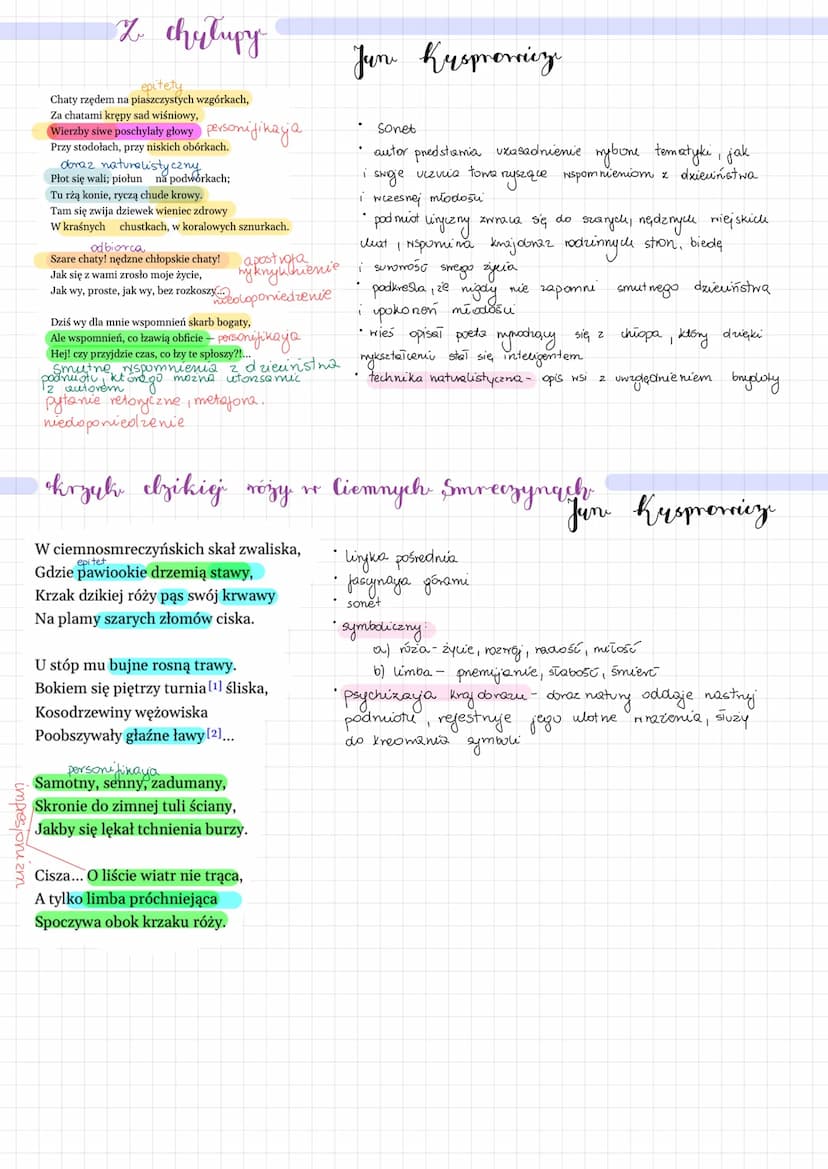 Z chałupy
Jan Kasprowicz
epitety
Chaty rzędem na piaszczystych wzgórkach,
Za chatami krępy sad wiśniowy,
Wierzby siwe poschylały głowy personifikacja
Przy stodołach, przy niskich obórkach.
obraz naturalistyczny
Płot się wali; piołun na podwórkach;
Tu rżą konie, ryczą chude krowy.
Tam się zwija dziewek wieniec zdrowy
W kraśnych chustkach, w koralowych sznurkach.
odbiorca
Szare chaty! nędzne chłopskie chaty! apostrofa
wykrzyknienie
Jak się z wami zrosło moje życie,
Jak wy, proste, jak wy, bez rozkoszy... niedopowiedzenie
Dziś wy dla mnie wspomnień skarb bogaty,
Ale wspomnień, co łzawią obficie – personifikacja
Hej! czy przyjdzie czas, co łzy te spłoszy?!...
smutne wspomnienia z dzieciństwa
podmiotu, którego można utożsamić
z autorem
pytanie retoryczne, metafora.
niedopowiedzenie
• sonet
• autor przedstawia uzasadnienie wybranej tematyki, jak
i swoje uczucia towarzyszące wspomnieniom z dzieciństwa
i wczesnej młodości
• podmiot liryczny zwraca się do szarych, nędznych wiejskich
chat, wspomina krajobraz rodzinnych stron, biedę
i surowość swego życia
• podkreśla, że nigdy nie zapomni smutnego dzieciństwa
i upokorzeń młodości
• wieś opisał poeta wywodzący się z chłopa, który dzięki
wykształceniu stał się inteligentem
• technika naturalistyczna - opis wsi z uwzględnieniem brzydoty
krzak dzikiej róży w Ciemnych Smreczynach
Jan Kasprowicz
W ciemnosmreczyńskich skał zwaliska,
epitet
Gdzie pawiookie drzemią stawy,
Krzak dzikiej róży pąs swój krwawy
Na plamy szarych złomów ciska.
U stóp mu bujne rosną trawy.
Bokiem się piętrzy turnia[1] śliska,
Kosodrzewiny wężowiska
Poobszywały głaźne ławy[2]...
personifikacja
Samotny, senny, zadumany,
Skronie do zimnej tuli ściany,
Jakby się lękał tchnienia burzy.
impresjonizm
Cisza... O liście wiatr nie trąca,
A tylko limba próchniejąca
Spoczywa obok krzaku róży.
• liryka pośrednia
• fascynacja górami
• sonet
• symboliczny:
a) róża - życie, rozwój, radość, miłość
b) limba - przemijanie, słabość, śmierć
• psychizacja krajobrazu - obraz natury oddaje nastrój
podmiotu, rejestruje jego ulotne wrażenia, służy
do kreowania symboli